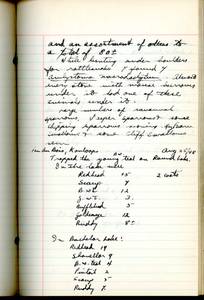 and an assortment of others to
a total of 80±
While hunting under boulders
for rattlesnakes I found 7
Ambystoma macrodactylum. Almost
every stone with moist
under it had one of these
animals under it.
Large numbers of savannah
sparrows, vesper sparrows & some
chipping sparrows
& some cliff swallows
seen.
Lac du Bois, Kamloops Aug 25/48
Trapped the young teal on Lake.
In the lake were
Redhead 15 2 coots
Scaup 9
B.W.T. 12
G.W.T. 3
Bufflehead 5
Goldeneye 12
Ruddy 8±
In Bachelor Lake:
Redhead 19
Shoveller 9
B.W. teal 4
Pintail 2
Scaup 5
Ruddy 4